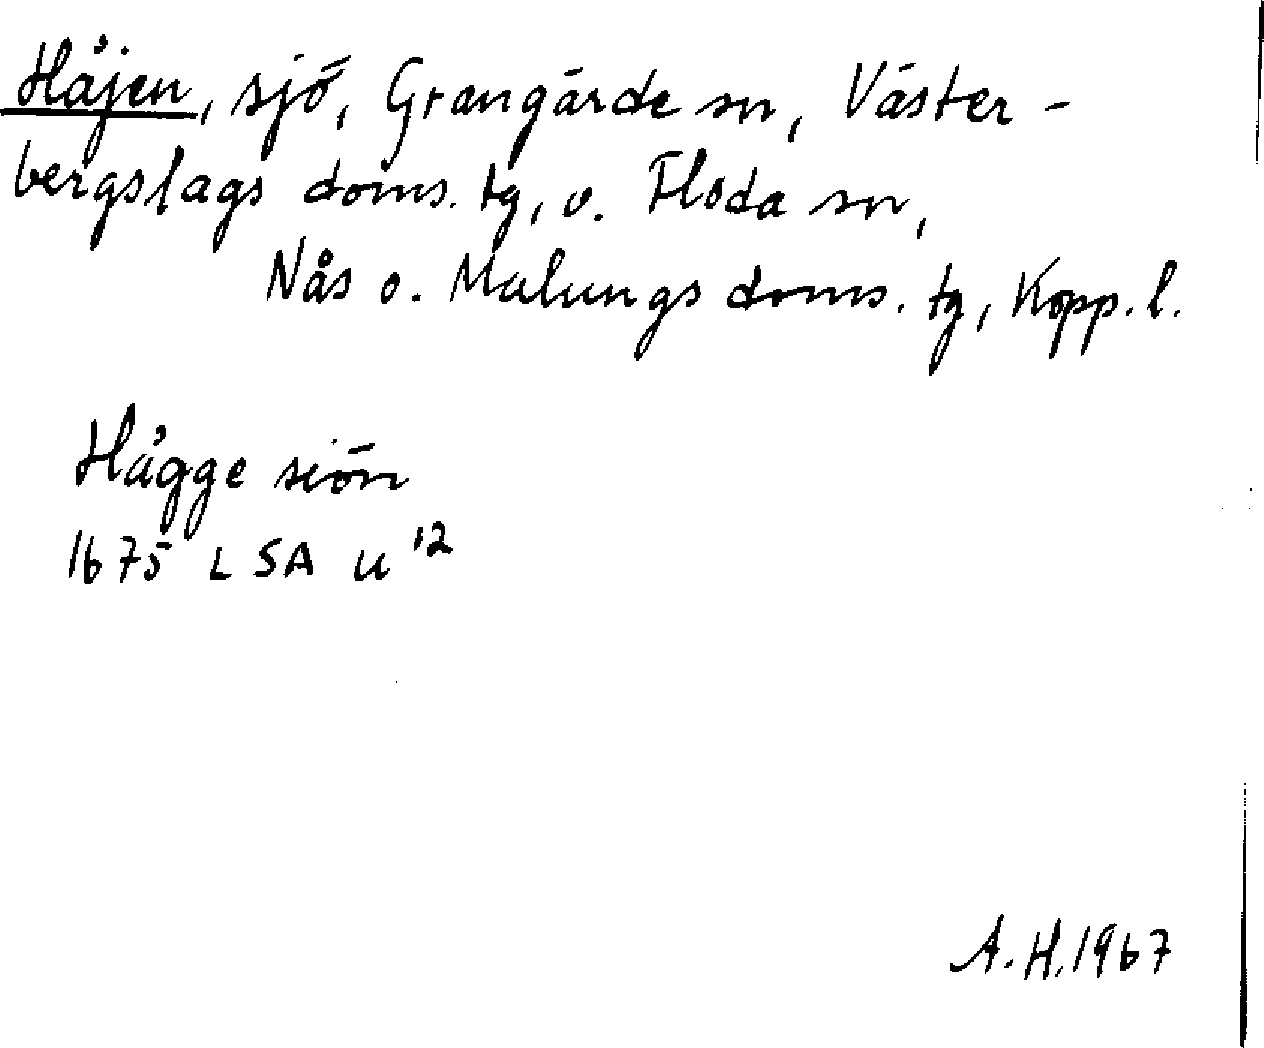 Håjen, sjö, Grangärde sn, Väster-
bergslags doms. tg, o. Floda sn,
Nås o. Malungs doms. tg, Kopp. l.
Hågge siön
1675 LSA U 12
A.H. 1967